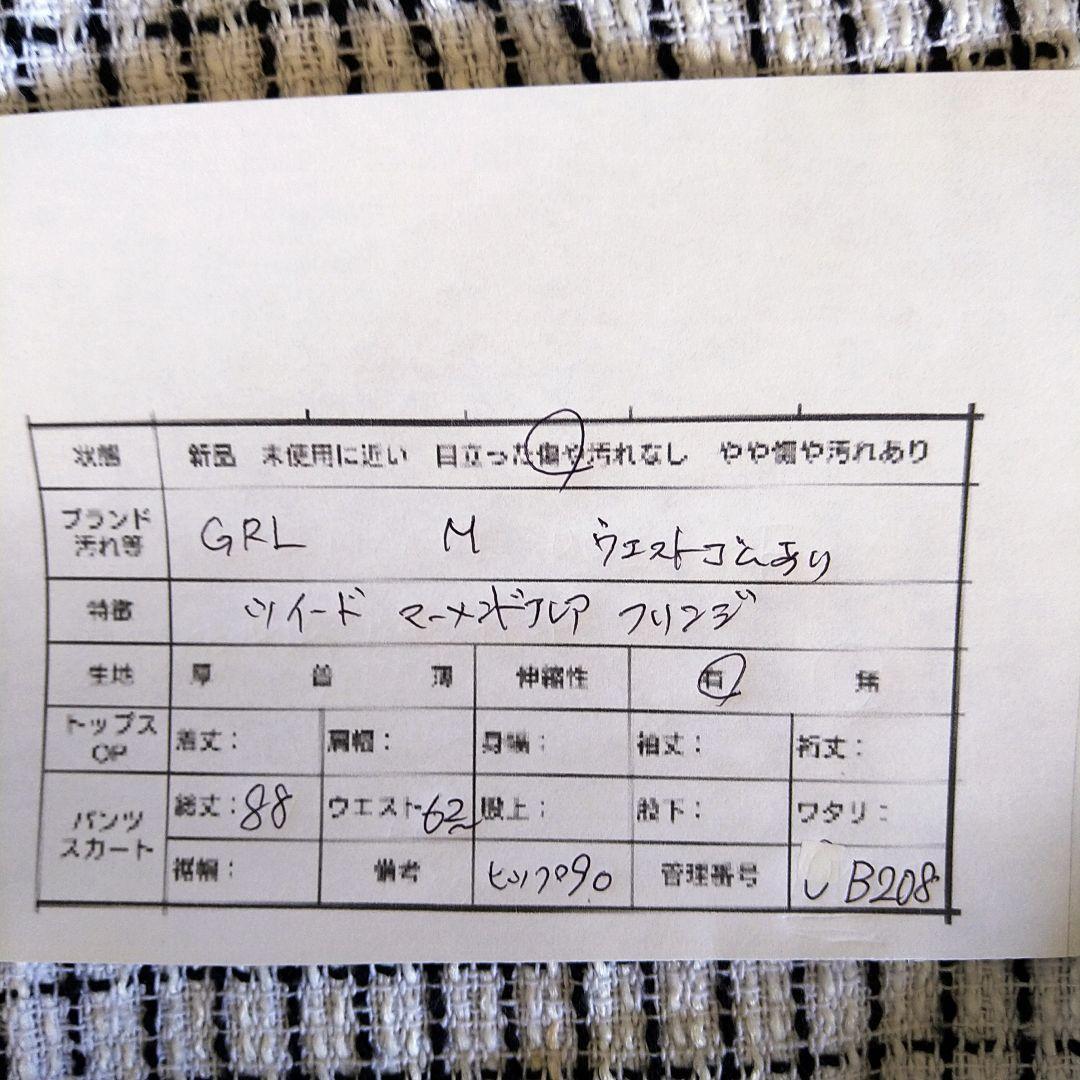 状態 新品 未使用に近い 目立った傷や汚れなし やや傷や汚れあり
ブランド
汚れ等 GRL M ウエストゴムあり
特徴 ツイード マーメンドフレア フリンジ
生地 厚 普 薄 伸縮性 有 無
トップス
OP 着丈: 肩幅: 身幅: 袖丈: 裄丈:
パンツ
スカート 総丈:88 ウエスト 62〜 股上: 股下: ワタリ:
裾幅: 備考 ヒップ90 管理番号 B208